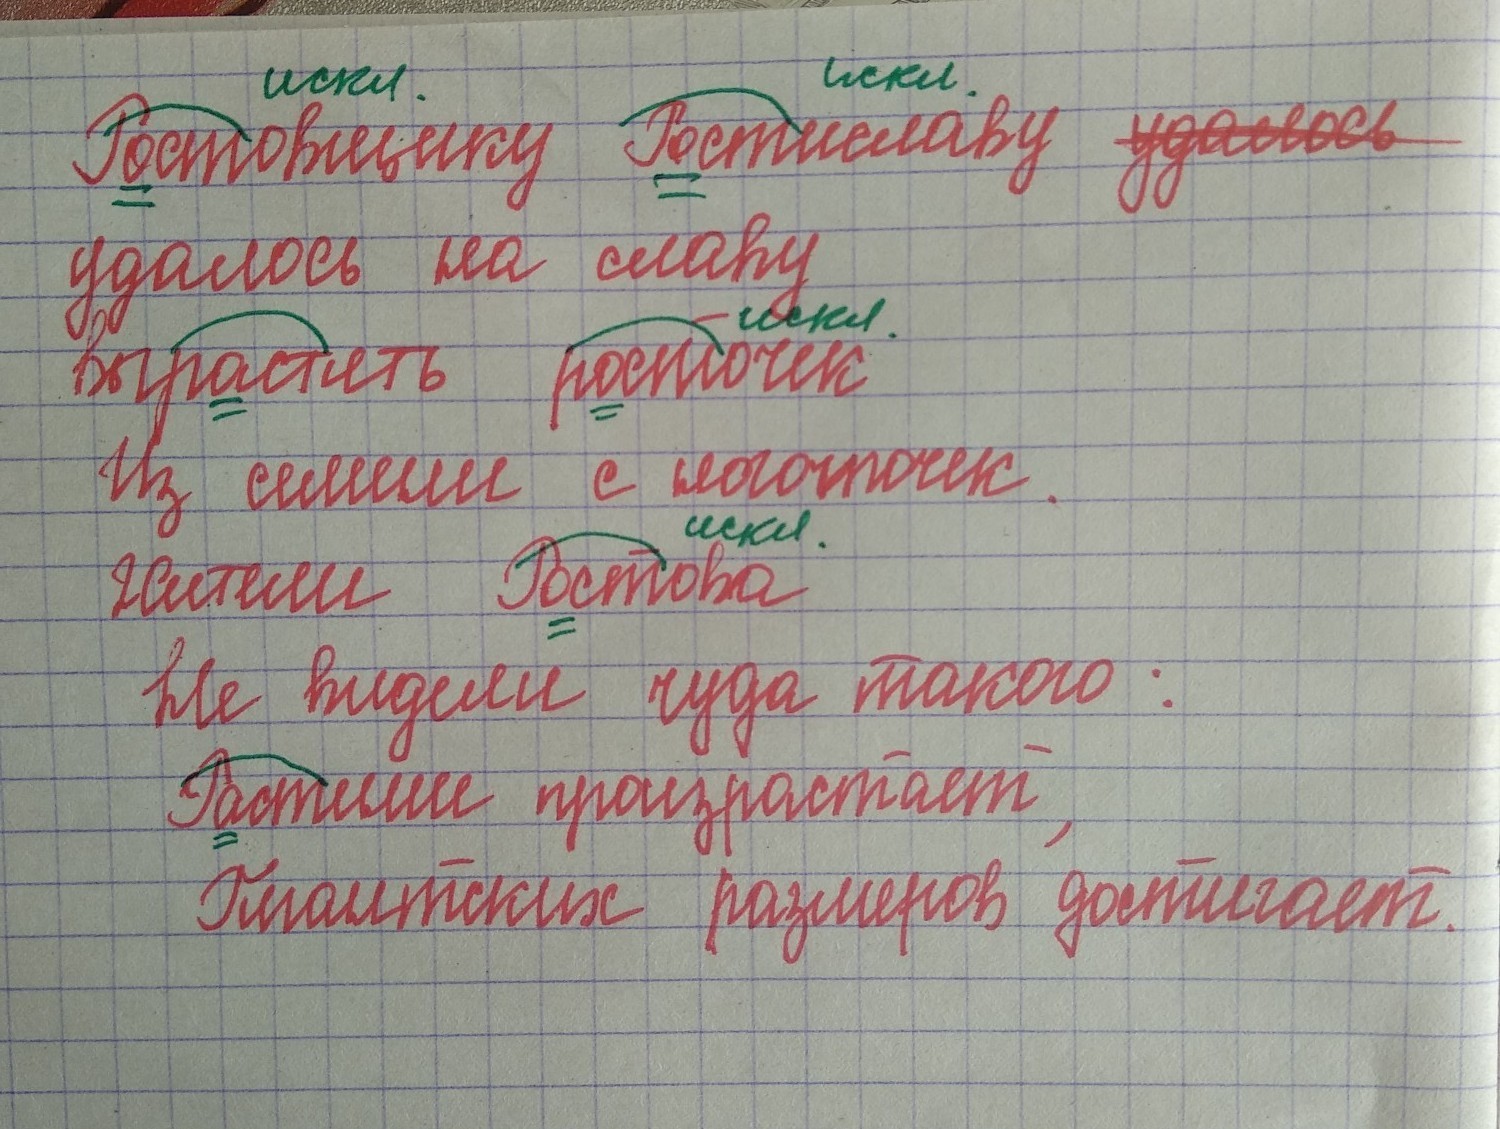 искл. искл.
Ростовщику Ростиславу удалось
удалось на славу
вырастить росточек
искл.
Из семени с ноготочек.
искл.
Жители Ростова
Не видели чуда такого:
Растение произрастает,
Гигантских размеров достигает.